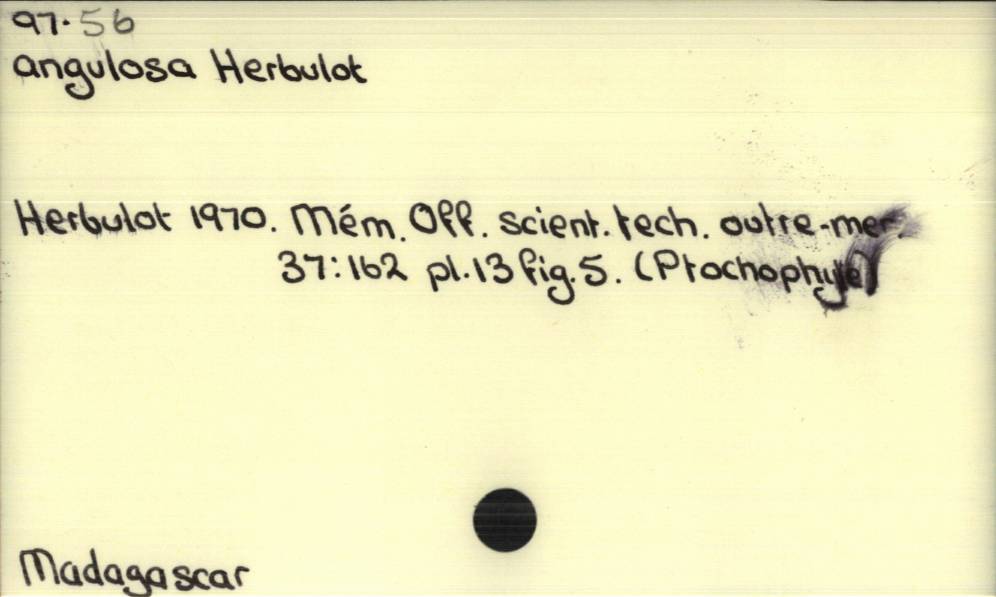 97.56
angulosa Herbulot
Herbulot 1970. Mém. Off. scient. tech. outre-mer.
37:162 pl.13 fig.5. (Ptochophyle)
Madagascar